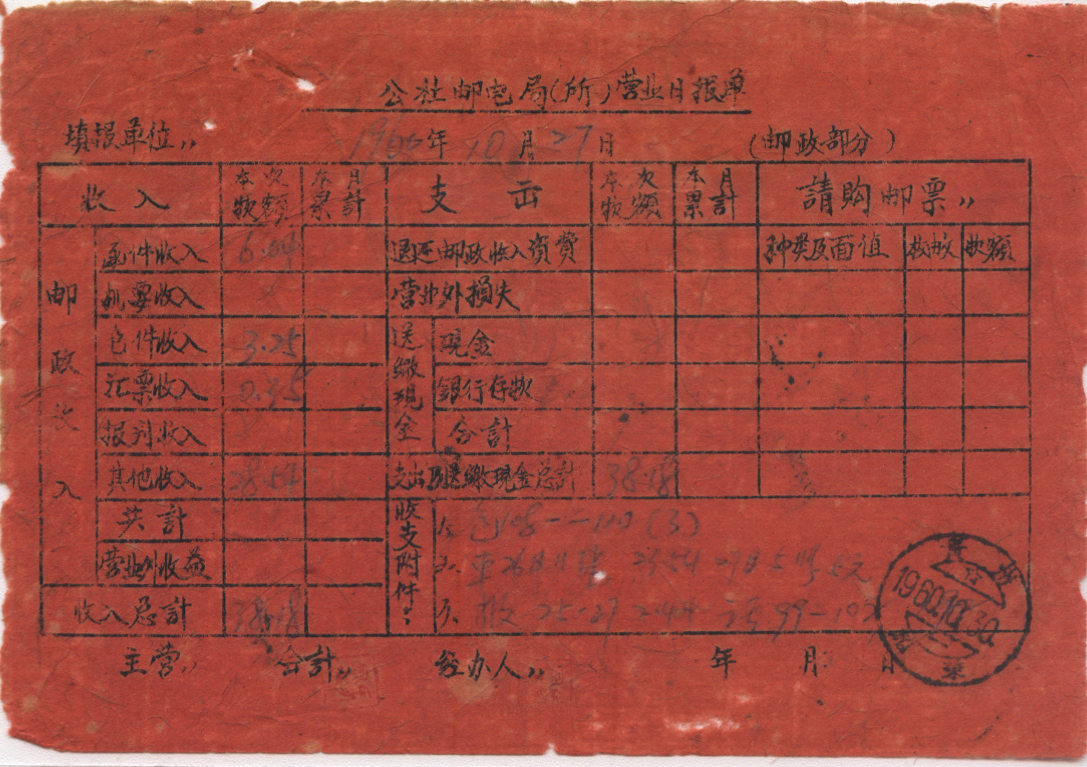 公社邮电局(所)营业日报单
填报单位,, 1960年10月27日 (邮政部分)
收入 本次款额 本月累計 支出 本次款额 本月累計 請购邮票,,
邮政收入 函件收入 6.04 退还邮政收入资費 种类及面值 枚数 款额
机要收入 营业外損失
包件收入 3.25 送缴現金 現金
汇票收入 0.35 銀行存款
报刋收入 合計
其他收入 28.54 支出及送缴現金总計 38.18
共計 收支附件: 1. 包108-110 (3)
营业外收益 2.
收入总計 38.18 3. 25-27 2.44 99-102
主管,, 合計,, 经办人,, 年 月 日
1960.10.30